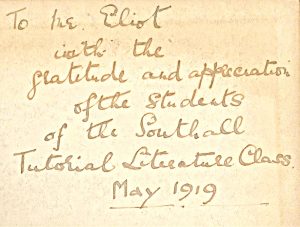 To Mr. Eliot
with the
gratitude and appreciation
of the Students
of the Southall
Tutorial Literature Class.
May 1919